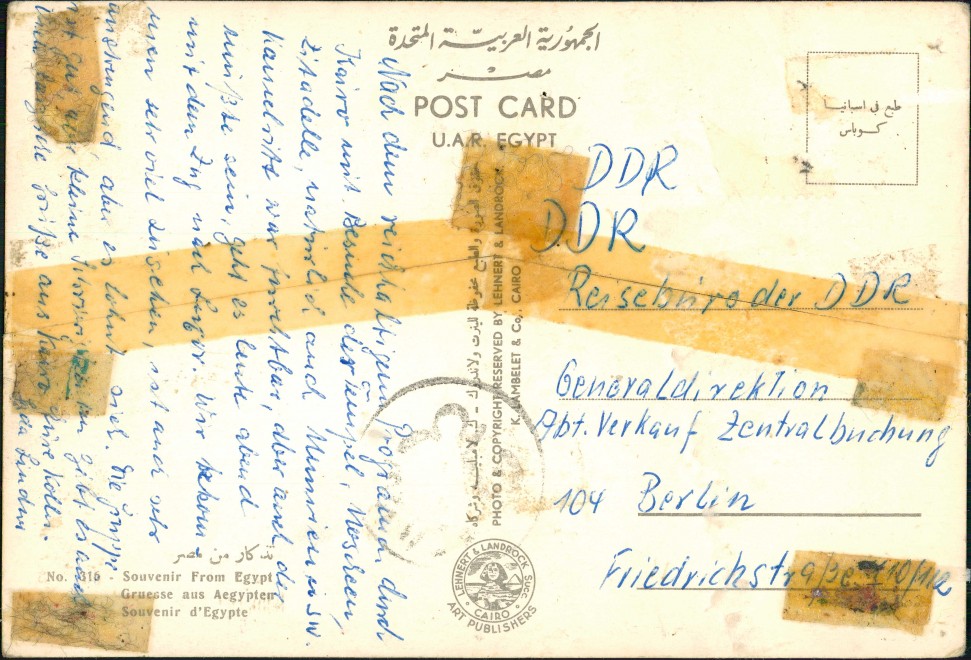 الجمهورية العربية المتحدة
مصر
POST CARD
U.A.R. EGYPT
طبع في اسبانيا
DDR
DDR
Reisebüro der DDR
Generaldirektion
Abt. Verkauf Zentralbuchung
104 Berlin
Friedrichstraße 110/112
Nach dem reichhaltigen Programm durch
Kairo mit Besuch der Tempel, Moscheen,
Zitadelle, natürlich auch Mumien usw.
Kamelritt war furchtbar, aber auch das
mußte sein, geht es heute abend
mit dem Zug nach Luxor. Wir haben
sehr viel gesehen, ist auch sehr
anstrengend aber es lohnt sich. Die
ist gut, kleine gibt es auch
Grüße aus Kairo
PHOTO & COPYRIGHT RESERVED BY LEHNERT & LANDROCK
K. LAMBELET & Co., CAIRO
LEHNERT & LANDROCK Succ.
CAIRO
ART PUBLISHERS
تذكار من مصر
No. 316 - Souvenir From Egypt
Gruesse aus Aegypten
Souvenir d'Egypte